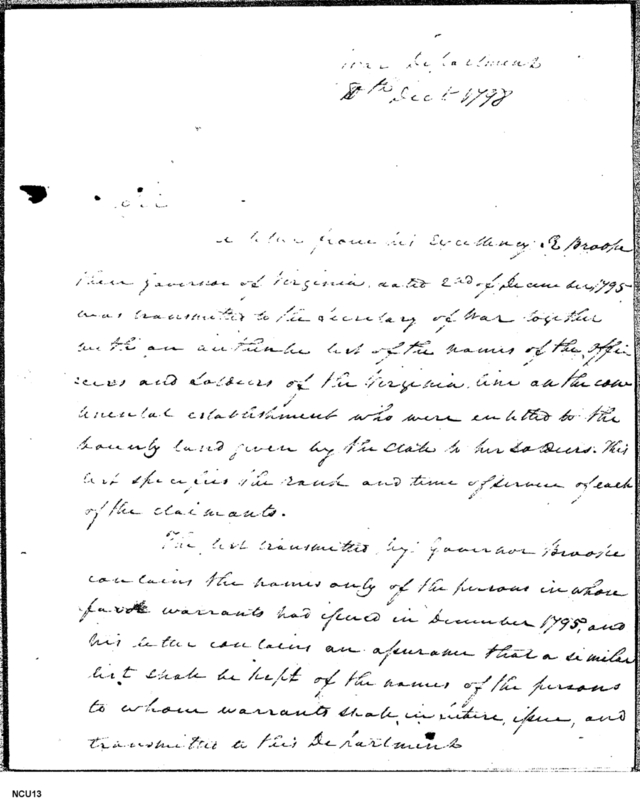 War Department
8th Dec 1798
Sir
a letter from his Excellency R Brooke
then governor of Virginia dated 2nd of December 1795
was transmitted to the Secretary of War together
with an authentic list of the names of the Offi
cers and Soldiers of the Virginia line on the con
tinental establishment who were entitled to the
bounty land given by the State to her Soldiers. This
list specifies the rank and time of service of each
of the claimants.
The list transmitted by Governor Brooke
contains the names only of the persons in whose
favor warrants had issued in December 1795, and
his letter contains an assurance that a similar
list shall be kept of the names of the persons
to whom warrants shall, in future, issue, and
transmitted to this Department
NCU13